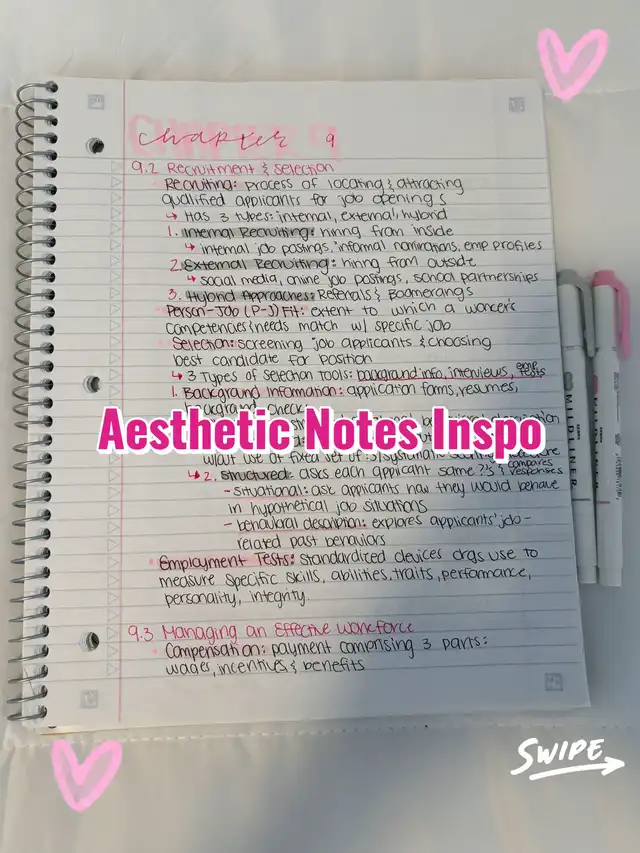 chapter 9
9.2 Recruitment & Selection
Recruiting: process of locating & attracting
qualified applicants for job openings
↳ Has 3 types: internal, external, hybrid
1. Internal Recruiting: hiring from inside
↳ internal job postings, informal nominations, emp profiles
2. External Recruiting: hiring from outside
↳ social media, online job postings, school partnerships
3. Hybrid Approaches: Referrals & Boomerangs
Person-Job (P-J) Fit: extent to which a worker's
competencies & needs match w/ specific job
Selection: screening job applicants & choosing
best candidate for position
↳ 3 Types of Selection Tools: background info, interviews, emp tests
1. Background Information: application forms, resumes,
background check
Aesthetic Notes Inspo
w/out use of fixed set of ?s/systematic scoring
↳ 2. Structured: asks each applicant same ?'s & compares responses
- situational: ask applicants how they would behave
in hypothetical job situations
- behavioral description: explores applicants' job-
related past behaviors
Employment Tests: standardized devices orgs use to
measure specific skills, abilities, traits, performance,
personality, integrity.
9.3 Managing an Effective Workforce
Compensation: payment comprising 3 parts:
wages, incentives & benefits
MIDLINER
SWIPE